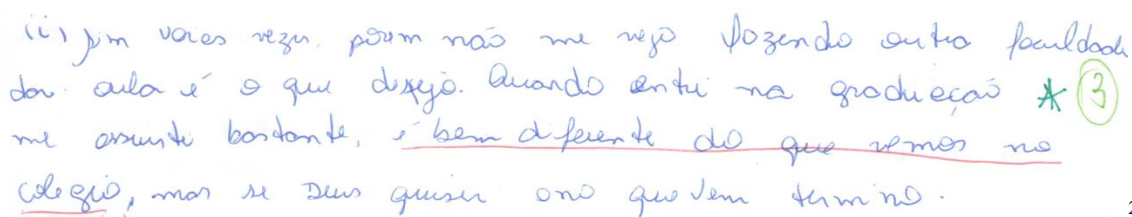 (ii) sim varas vezes, porem não me vejo fazendo outra faculdade
dar aula é o que desejo. Quando entri na gradueção * 3
me assunte bastante, é bem diferente do que vemos no
colegio, mas se Deus quiser ano que vem termino.
2